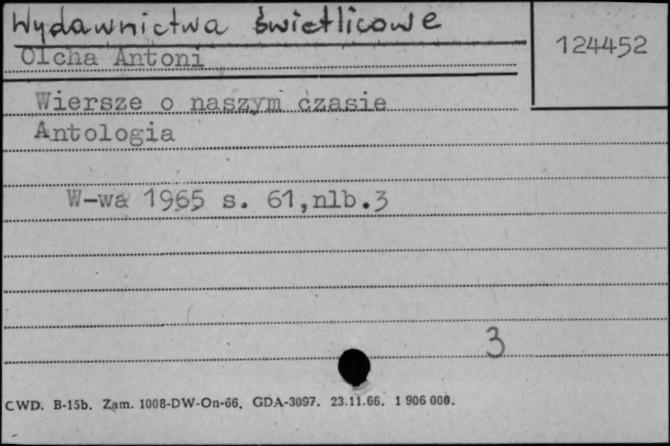 Wydawnictwa świetlicowe
124452
Olcha Antoni
Wiersze o naszym czasie
Antologia
W-wa 1965 s. 61,nlb.3
3
CWD. B-15b. Zam. 1008-DW-On-66. GDA-3097. 23.11.66. 1 906 000.